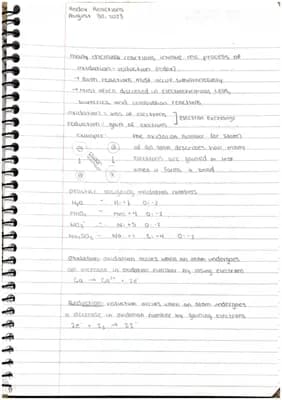 Redox Reactions
August 30, 2023
many chemical reactions involve the process of
oxidation - reduction (redox)
→ Both reactions must occur simultaneously
→ Most often discussed in electrochemical cells,
batteries, and combustion reactions
oxidation: loss of electrons
reduction: gain of electrons
] electron exchange
example:
the oxidation number for atoms
of an atom describes how many
electrons are gained or lost
when it forms a bond
practice assigning oxidation numbers
H₂O H: +1 O: -2
O: -2
NO₃⁻ N: +5 O: -2
Na: +1 O: -2
Oxidation: oxidation occurs when an atom undergoes
an increase in oxidation number by losing electrons
Ca → Ca²⁺ + 2e⁻
Reduction: reduction occurs when an atom undergoes
a decrease in oxidation number by gaining electrons
2e⁻ + I₂ → 2I⁻